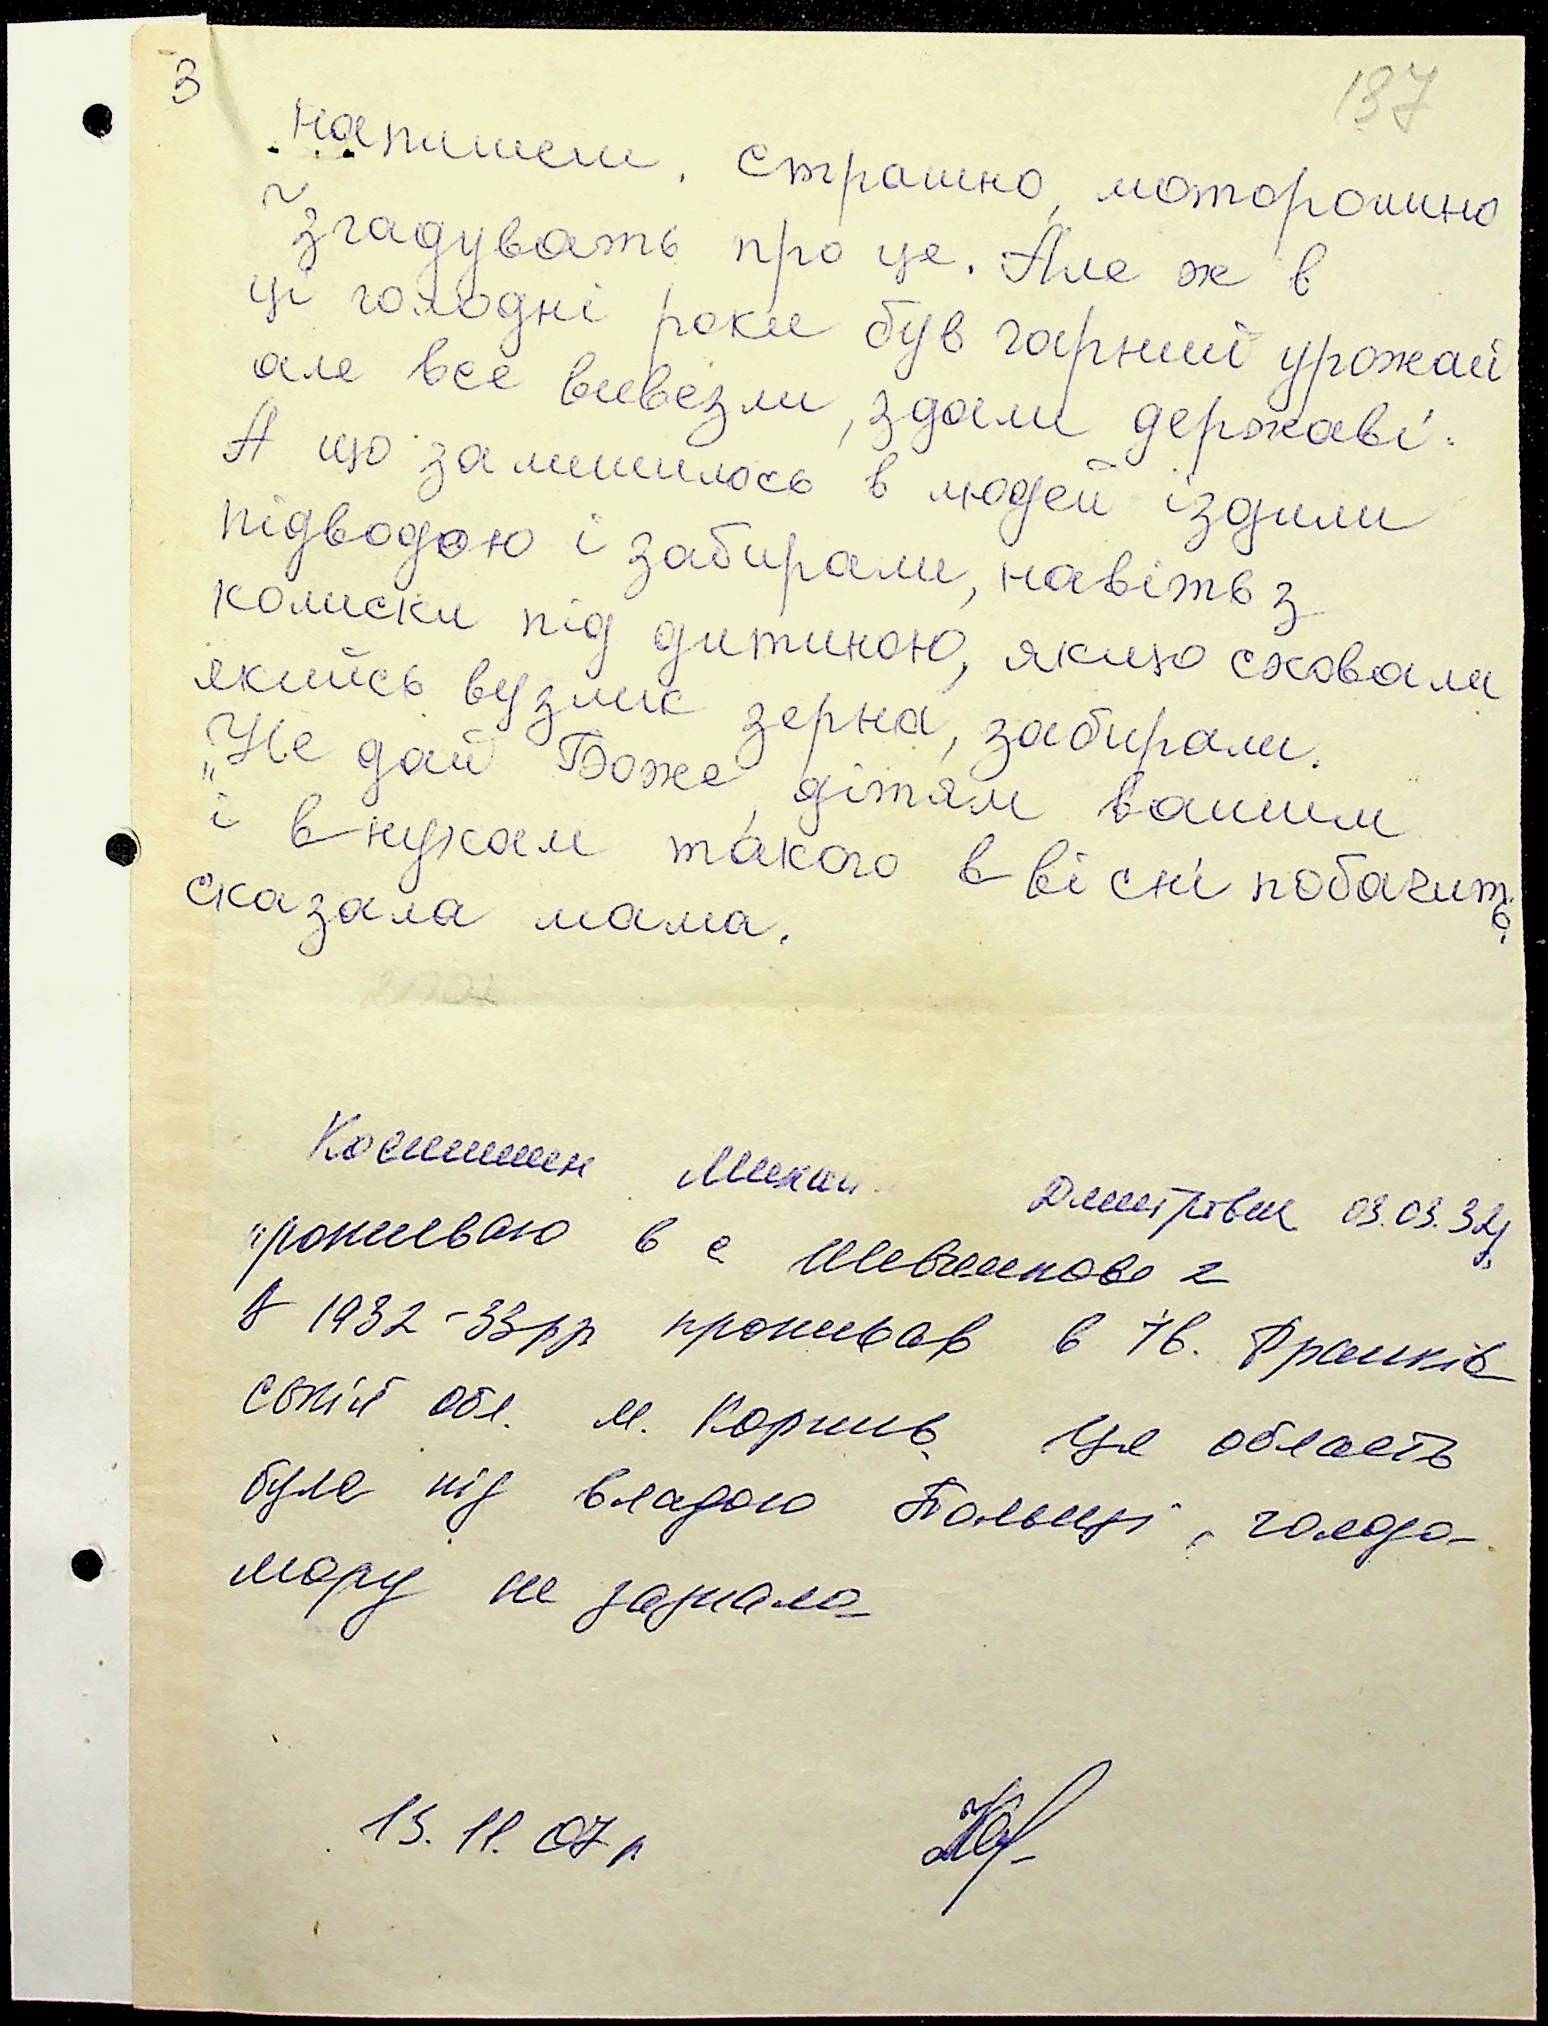 3
137
напишеш. Страшно, моторошно
згадувать про це. Але ж в
ці голодні роки був гарний урожай
але все вивезли, здали державі.
А що залишилось в людей їздили
підводою і забирали, навіть з
колиски під дитиною, якщо сховали
якийсь вузлик зерна, забирали.
„Не дай Боже дітям вашим
і внукам такого в вісні побачить,
сказала мама.
Дмитрович 03.03.32р.
проживаю в с Шевченкове 2
В 1932-33рр проживав в Ів. Франків
ській обл. м. Коршів. Ця область
була під владою Польщі, голодо-
мору не зазнала
15.11.07р